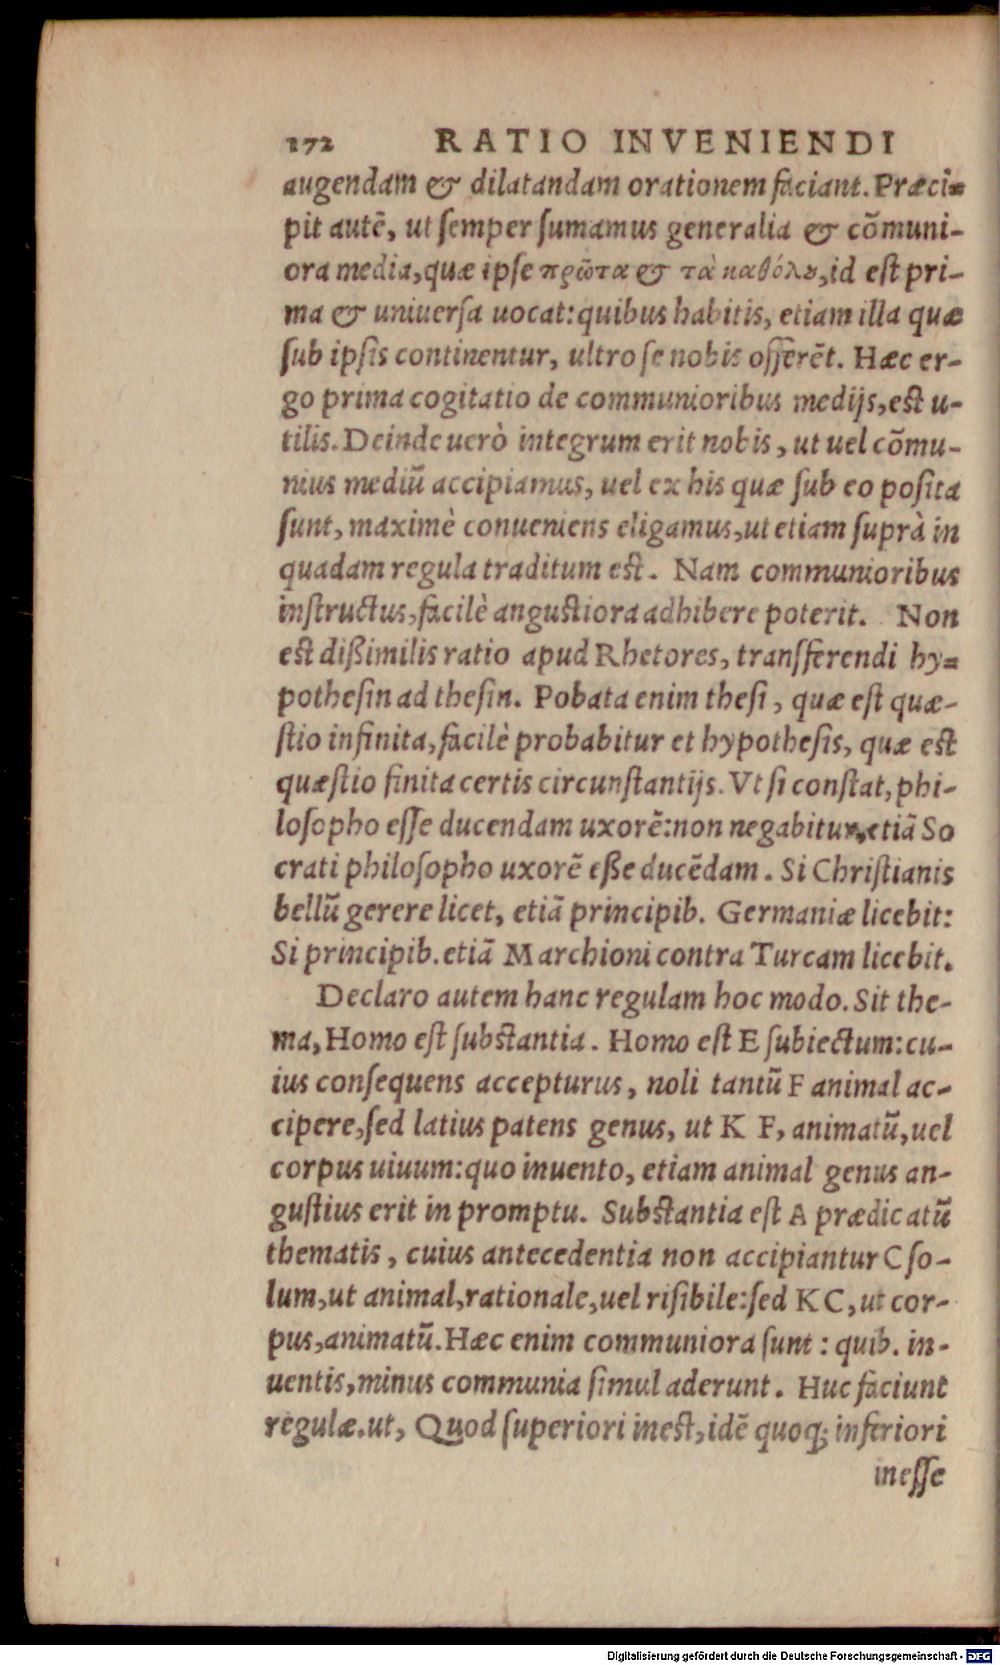 172 RATIO INVENIENDI
augendam & dilatandam orationem faciant. Præci-
pit autē, ut semper sumamus generalia & cōmuni-
ora media, quæ ipse πρῶτα & τὰ καθόλȣ, id est pri-
ma & uniuersa uocat: quibus habitis, etiam illa quæ
sub ipsis continentur, ultro se nobis offerēt. Hæc er-
go prima cogitatio de communioribus medijs, est u-
tilis. Deinde uerò integrum erit nobis, ut uel cōmu-
nius mediū accipiamus, uel ex his quæ sub eo posita
sunt, maximè conueniens eligamus, ut etiam suprà in
quadam regula traditum est. Nam communioribus
instructus, facilè angustiora adhibere poterit. Non
est dißimilis ratio apud Rhetores, transferendi hy-
pothesin ad thesin. Pobata enim thesi, quæ est quæ-
stio infinita, facilè probabitur et hypothesis, quæ est
quæstio finita certis circunstantijs. Vt si constat, phi-
losopho esse ducendam uxorē: non negabitur, etiā So
crati philosopho uxorē eße ducēdam. Si Christianis
bellū gerere licet, etiā principib. Germaniæ licebit:
Si principib. etiā Marchioni contra Turcam licebit.
Declaro autem hanc regulam hoc modo. Sit the-
ma, Homo est substantia. Homo est E subiectum: cu-
ius consequens accepturus, noli tantū F animal ac-
cipere, sed latius patens genus, ut K F, animatū, uel
corpus uiuum: quo inuento, etiam animal genus an-
gustius erit in promptu. Substantia est A prædicatū
thematis, cuius antecedentia non accipiantur C so-
lum, ut animal, rationale, uel risibile: sed K C, ut cor-
pus, animatū. Hæc enim communiora sunt: quib. in-
uentis, minus communia simul aderunt. Huc faciunt
regulæ. ut, Quod superiori inest, idē quoq; inferiori
inesse
Digitalisierung gefördert durch die Deutsche Forschungsgemeinschaft - DFG